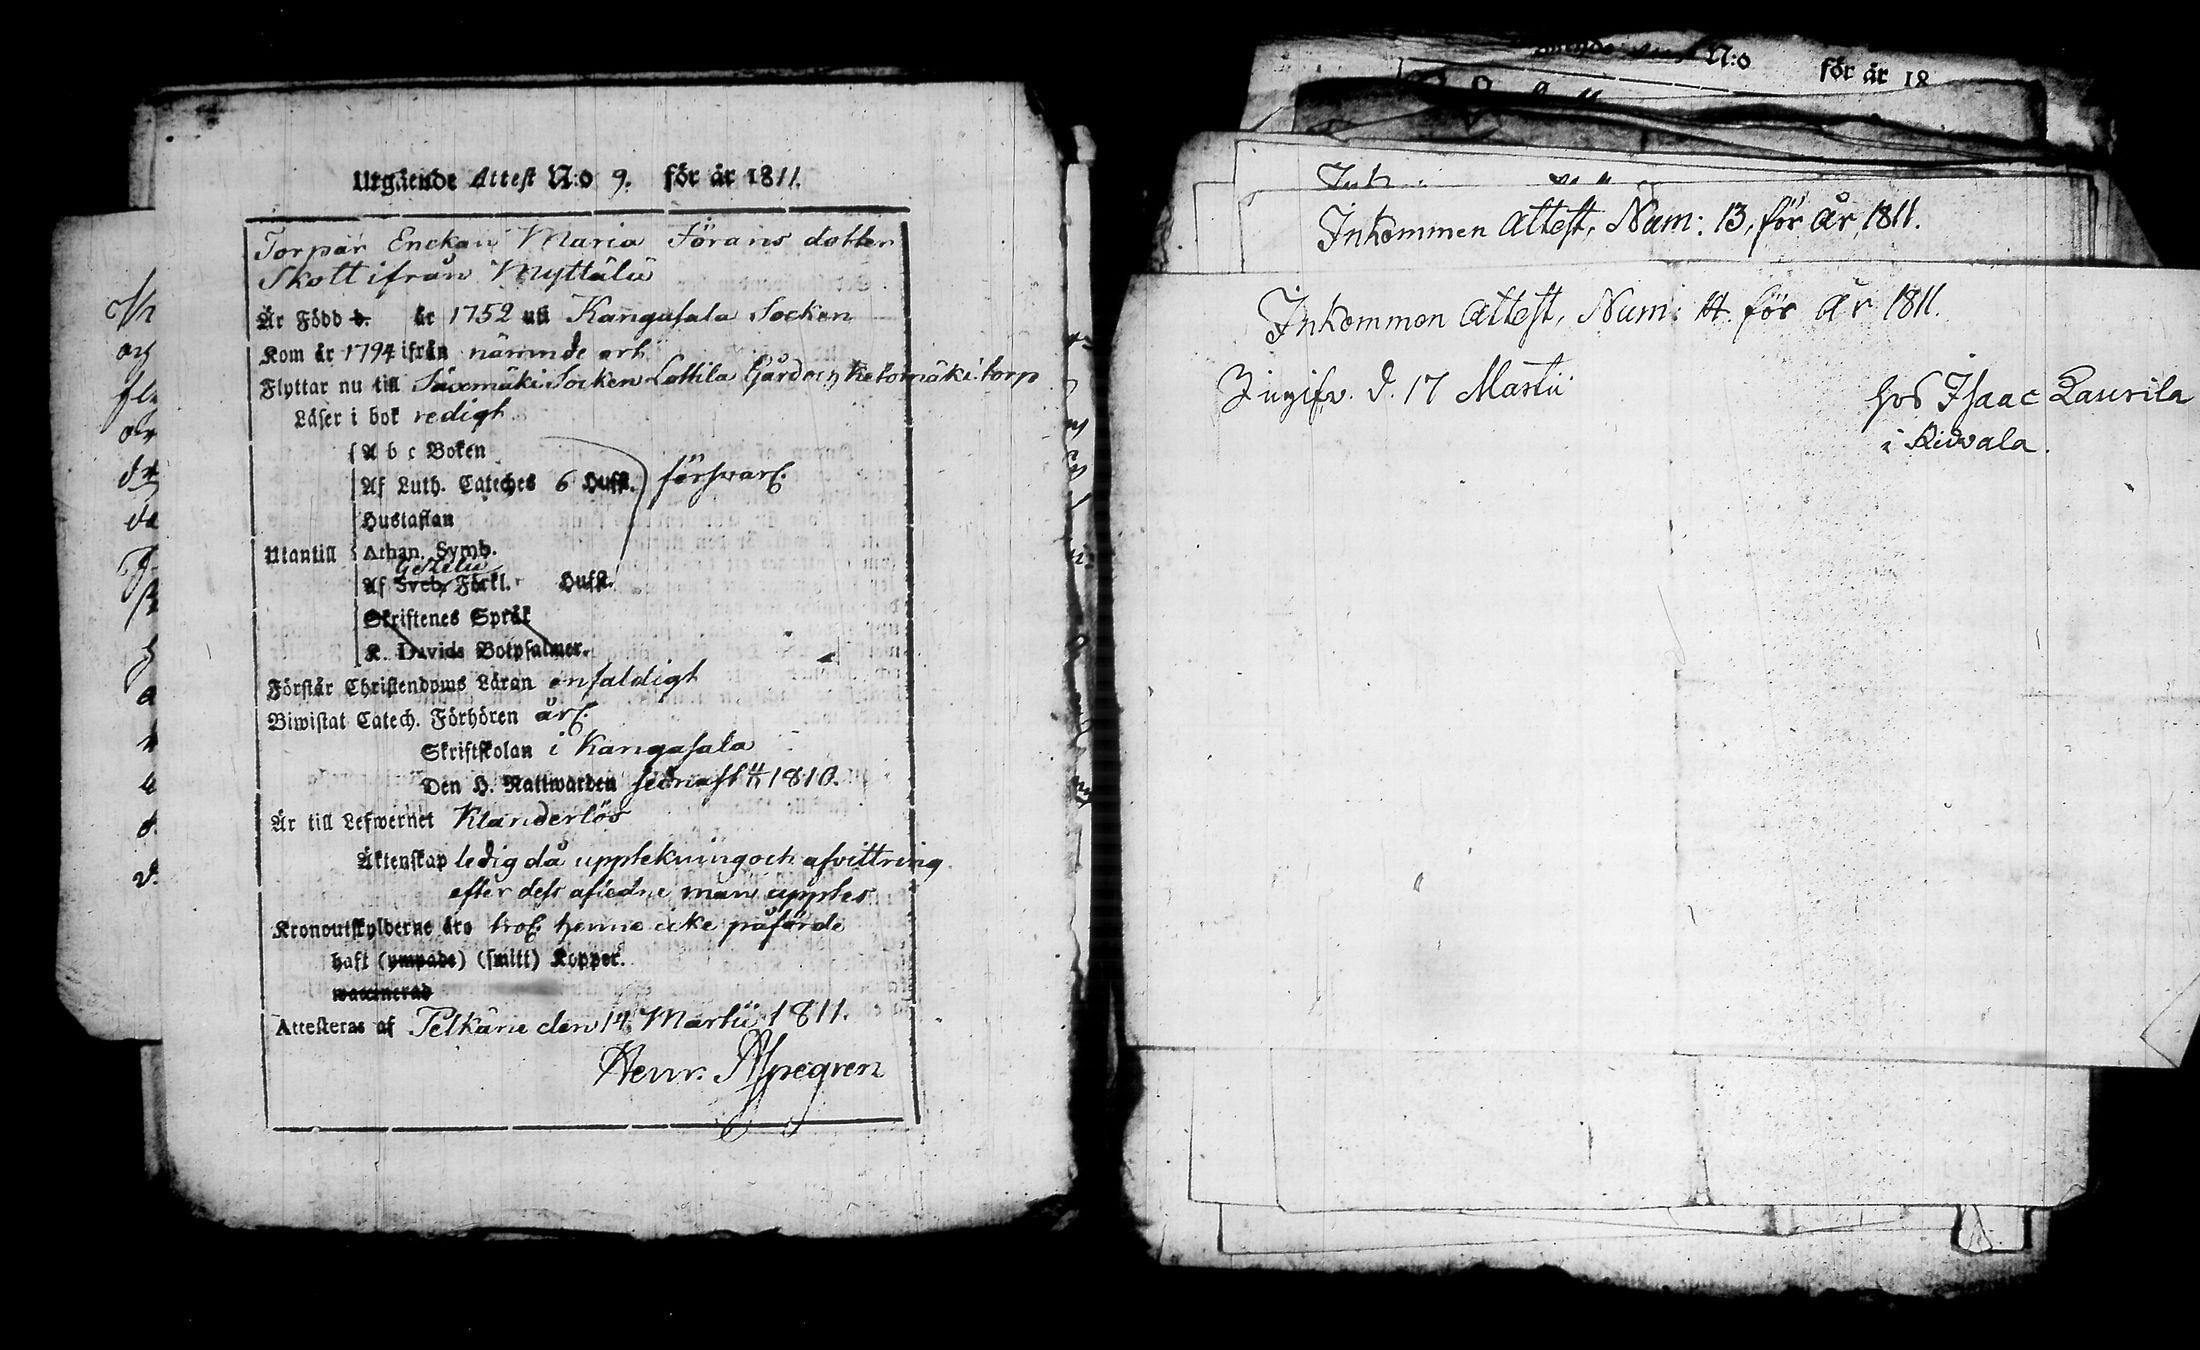 Utgående Attest N:o 9. för år 1811.
Torpar Enckan Maria Jörans dotter
Skott ifrån Myttälä
Är Född d. år 1752 uti Kangasala Socken
Kom år 1794 ifrån nämnde ort
Flyttar nu till Säxmäki Socken Lottila Gård och Ketomäki torp
Läser i bok redigt
A b c Boken
Af Luth. Cateches 6 Hufst. försvarl.
Hustaflan
Utantill Athan. Symb.
Gezelii
Af Sveb. Förkl. Hufst.
Skriftenes Språk
K. Davids Botpsalmer.
Förstår Christendoms Läran enfaldigt
Biwistat Catech. Förhören årl.
Skriftskolan i Kangasala
Den H. Nattwarden sednast 1810.
Är till Lefwernet Klanderlös
Äktenskap ledig då uppteckning och afvittring
efter dess afledne man upptes
Kronoutskylderne äro trol. henne icke påförde
haft (ympade) (smitt) Koppor.
waccinerad
Attesteras af Pelkäne den 14 Martii 1811.
Henr. Alpegren
N:o för år 18
Inkommen Attest, Num: 13, för År 1811.
Inkommen Attest, Num: 14. för År 1811.
Ingifv. d. 17 Martii
hos Isaac Laurila
i Ridvala.